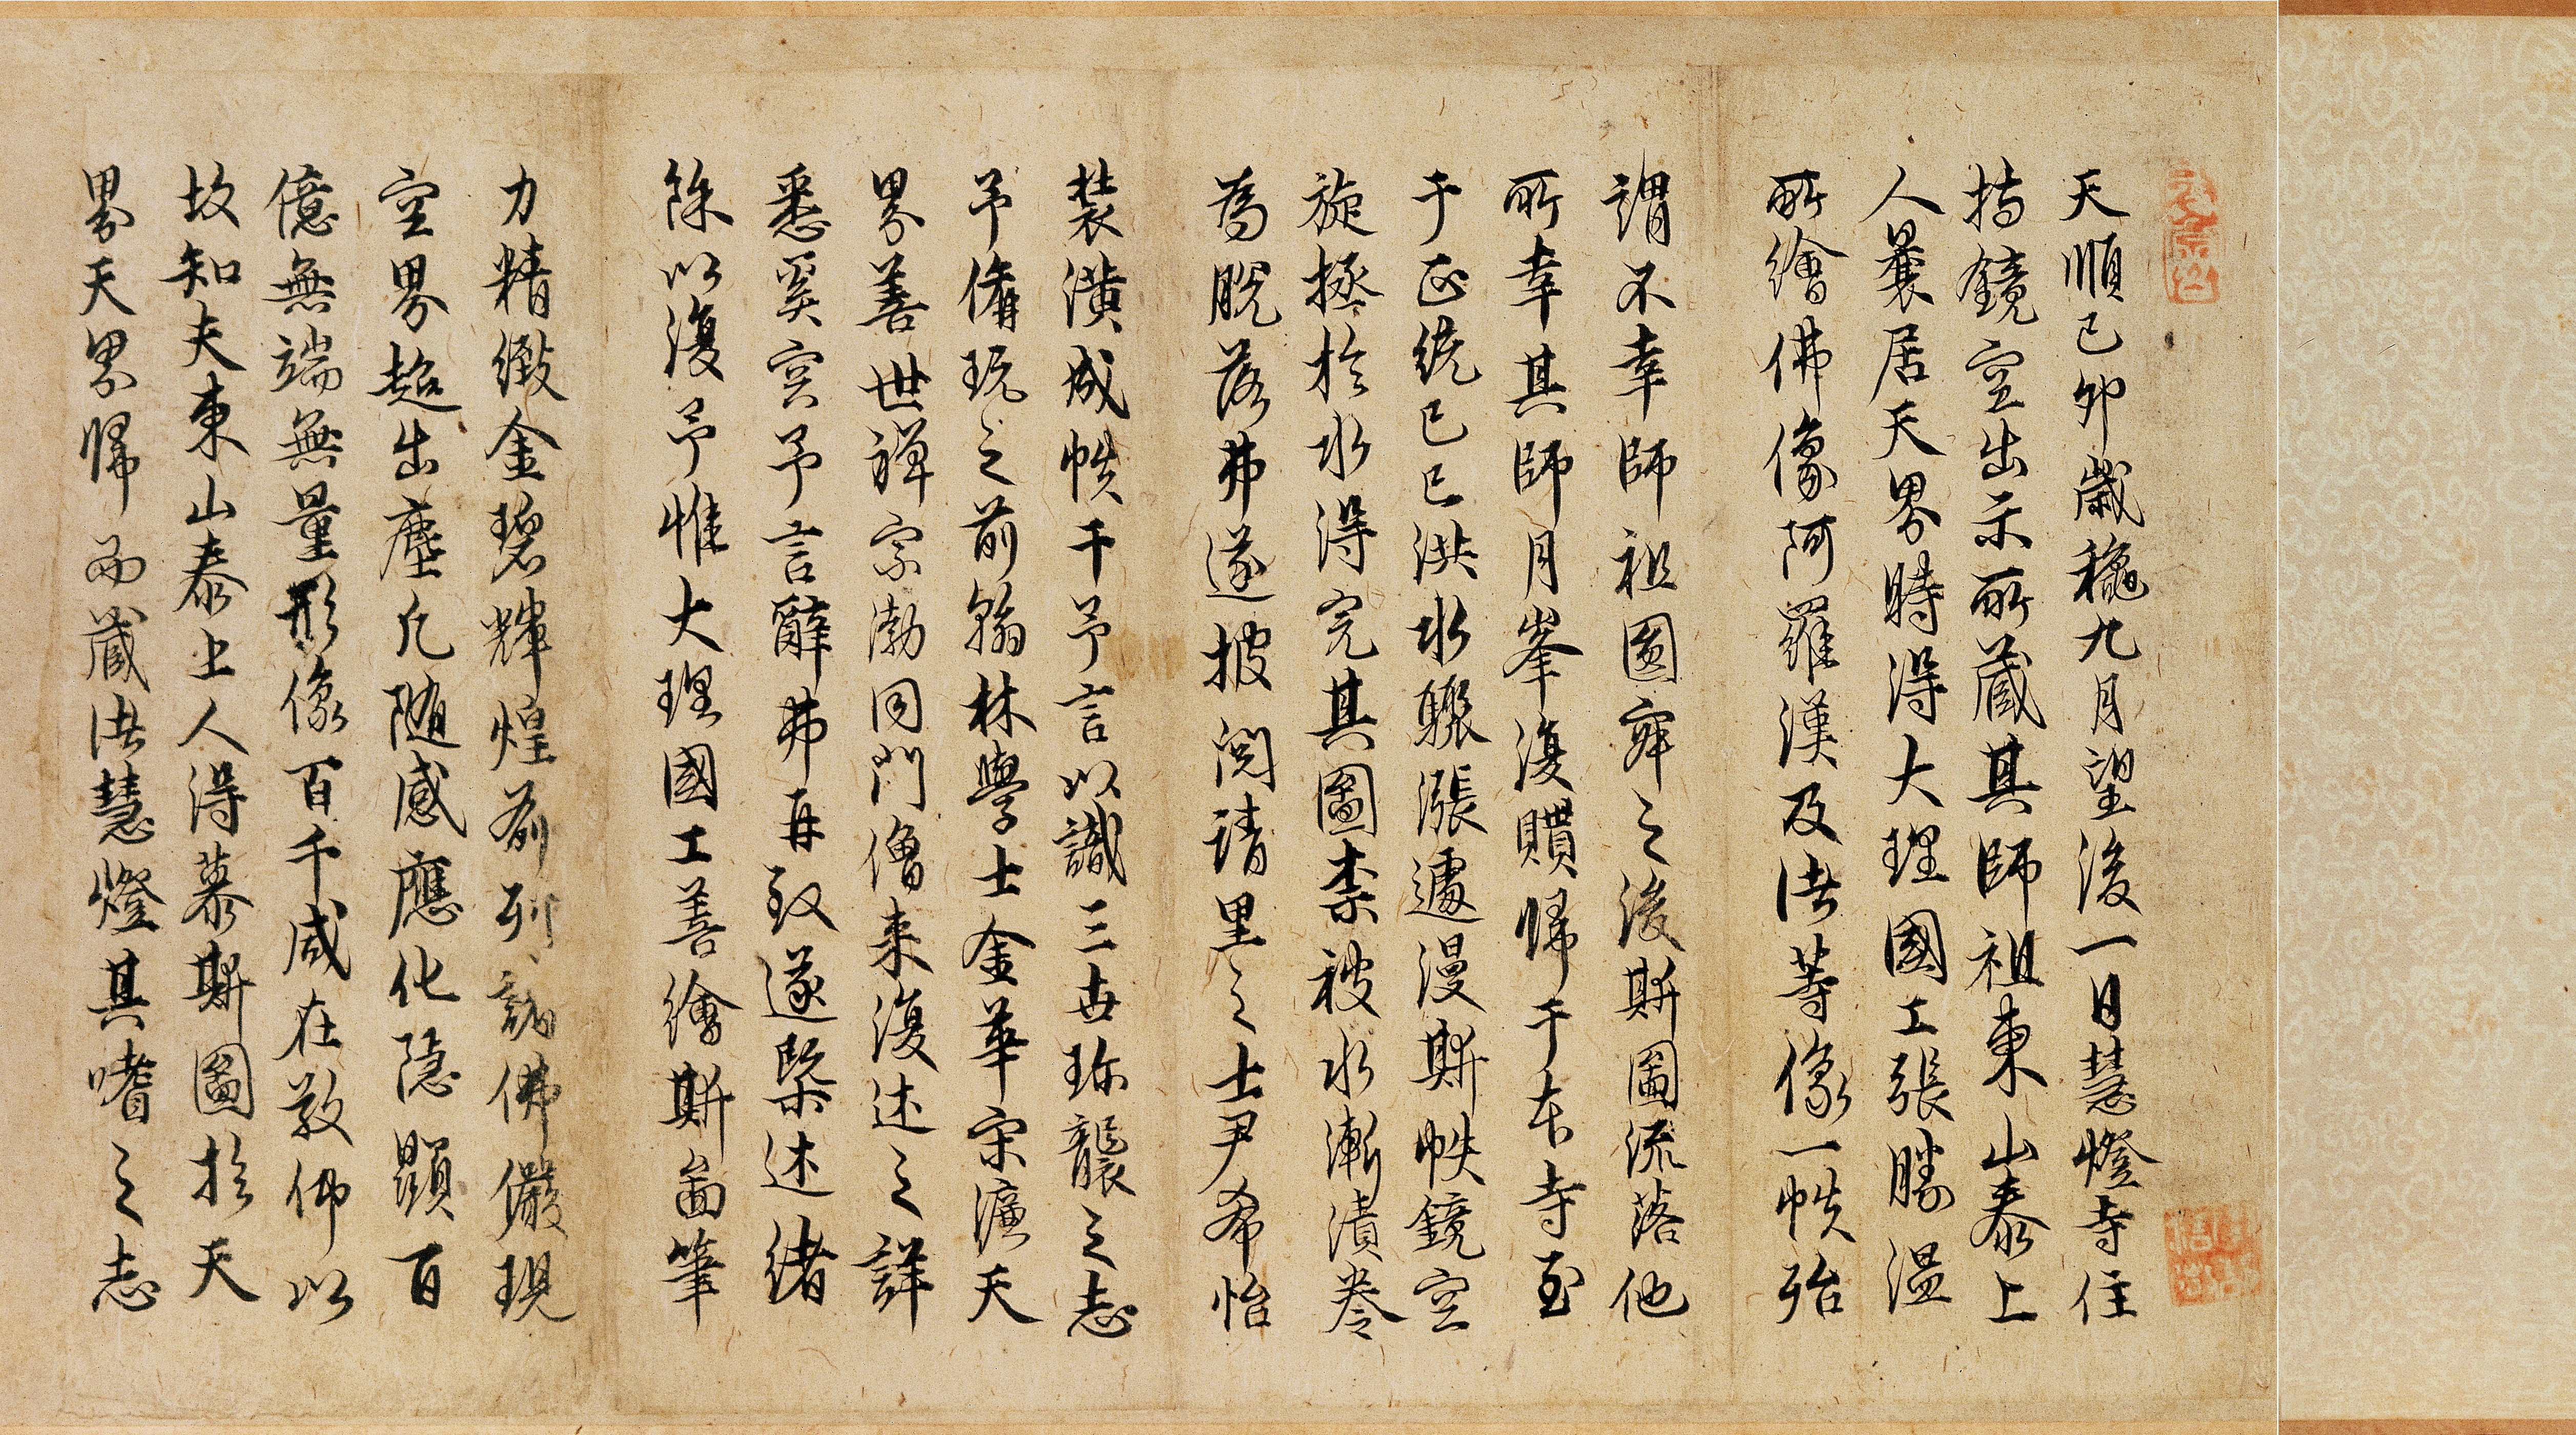 天順己卯歲穐九月望後一日慧燈寺住
持鏡空出示所藏其師祖東山泰上
人曩居天界時得大理國工張勝溫
所繪佛像阿羅漢及諸等像一帙殆
謂不幸師祖圓寂之後斯圖流落他
所幸其師月峯復贖歸于本寺至
于正統己巳洪水驟漲遽漫斯帙鏡空
旋拯於水得完其圖柰被水漸漬卷
為脫落弗遂披閱請里之士尹希怡
裝潢成帙干予言以識三世珎襲之志
予備玩之前翰林學士金華宋濂天
界善世禪宗泐同門僧来復述之詳
悉奚容予言辭弗再致遂槩述緒
餘以復予惟大理國工善繪斯啚筆
力精緻金碧輝煌前列諸佛儼現
空界超出塵凡隨感應化隐顯百
億無端無量形像百千咸在敎佛以
故知夫東山泰上人得慕斯圖於天
界天界歸而藏諸慧燈其嗜之志